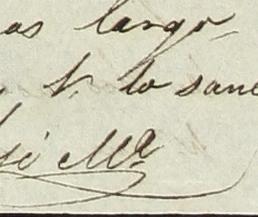 as largo
lo sane
sé Mª